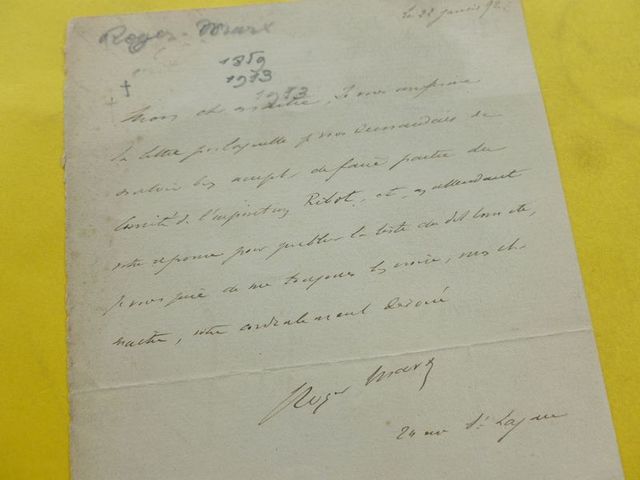 le 22 janvier 92
Roger-Marx
1859
1973
1973
Mon cher maître, Je vous confirme
la lettre par laquelle je vous demandais de
vouloir bien accepter de faire partie du
Comité de l'exposition Ribot, et, en attendant
votre réponse pour publier la liste du dit comité,
je vous prie de me toujours bien croire, mon cher
maître, votre cordialement dévoué
Roger Marx
24 rue St Lazare